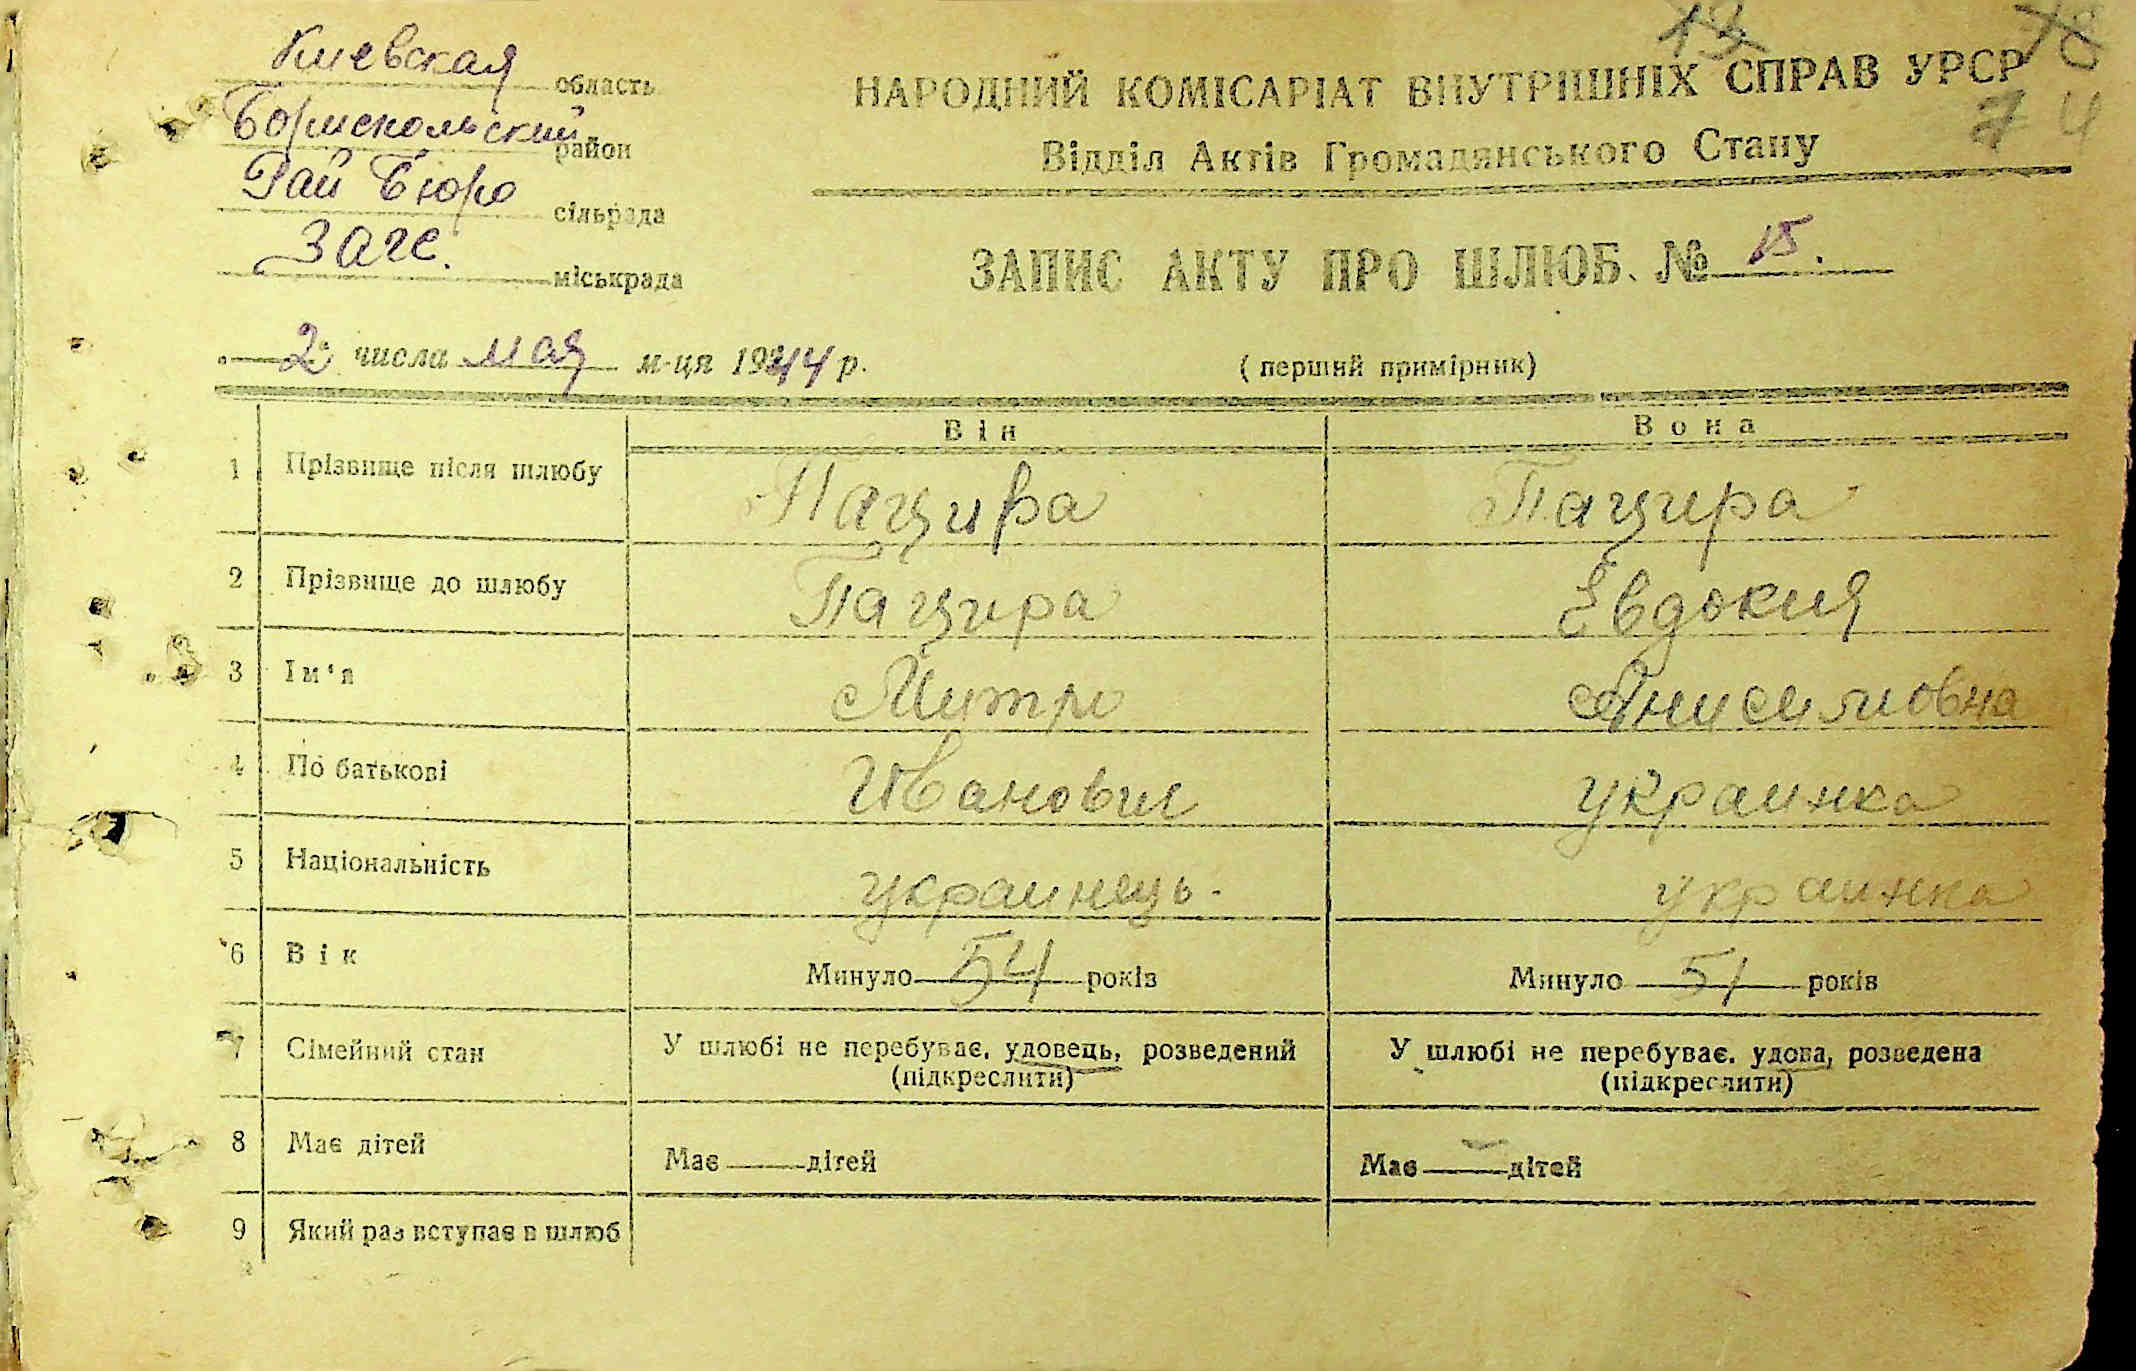 Киевская область
Бориспольский район
Рай Бюро сільрада
Загс. міськрада
13 78
74
НАРОДНИЙ КОМІСАРІАТ ВНУТРІШНІХ СПРАВ УРСР
Відділ Актів Громадянського Стану
ЗАПИС АКТУ ПРО ШЛЮБ. № 15.
"2" числа мая м-ця 1944 р.
(перший примірник)
Він Вона
1 Прізвище після шлюбу Пацира Пацира
2 Прізвище до шлюбу Пацира Евдокия
3 Ім'я Митро Анисимовна
4 По батькові Иванович украинка
5 Національність украинець. украинка
6 Вік Минуло 54 років Минуло 51 років
7 Сімейний стан У шлюбі не перебуває, удовець, розведений У шлюбі не перебуває, удова, розведена
(підкреслити) (підкреслити)
8 Має дітей Має — дітей Має — дітей
9 Який раз вступає в шлюб